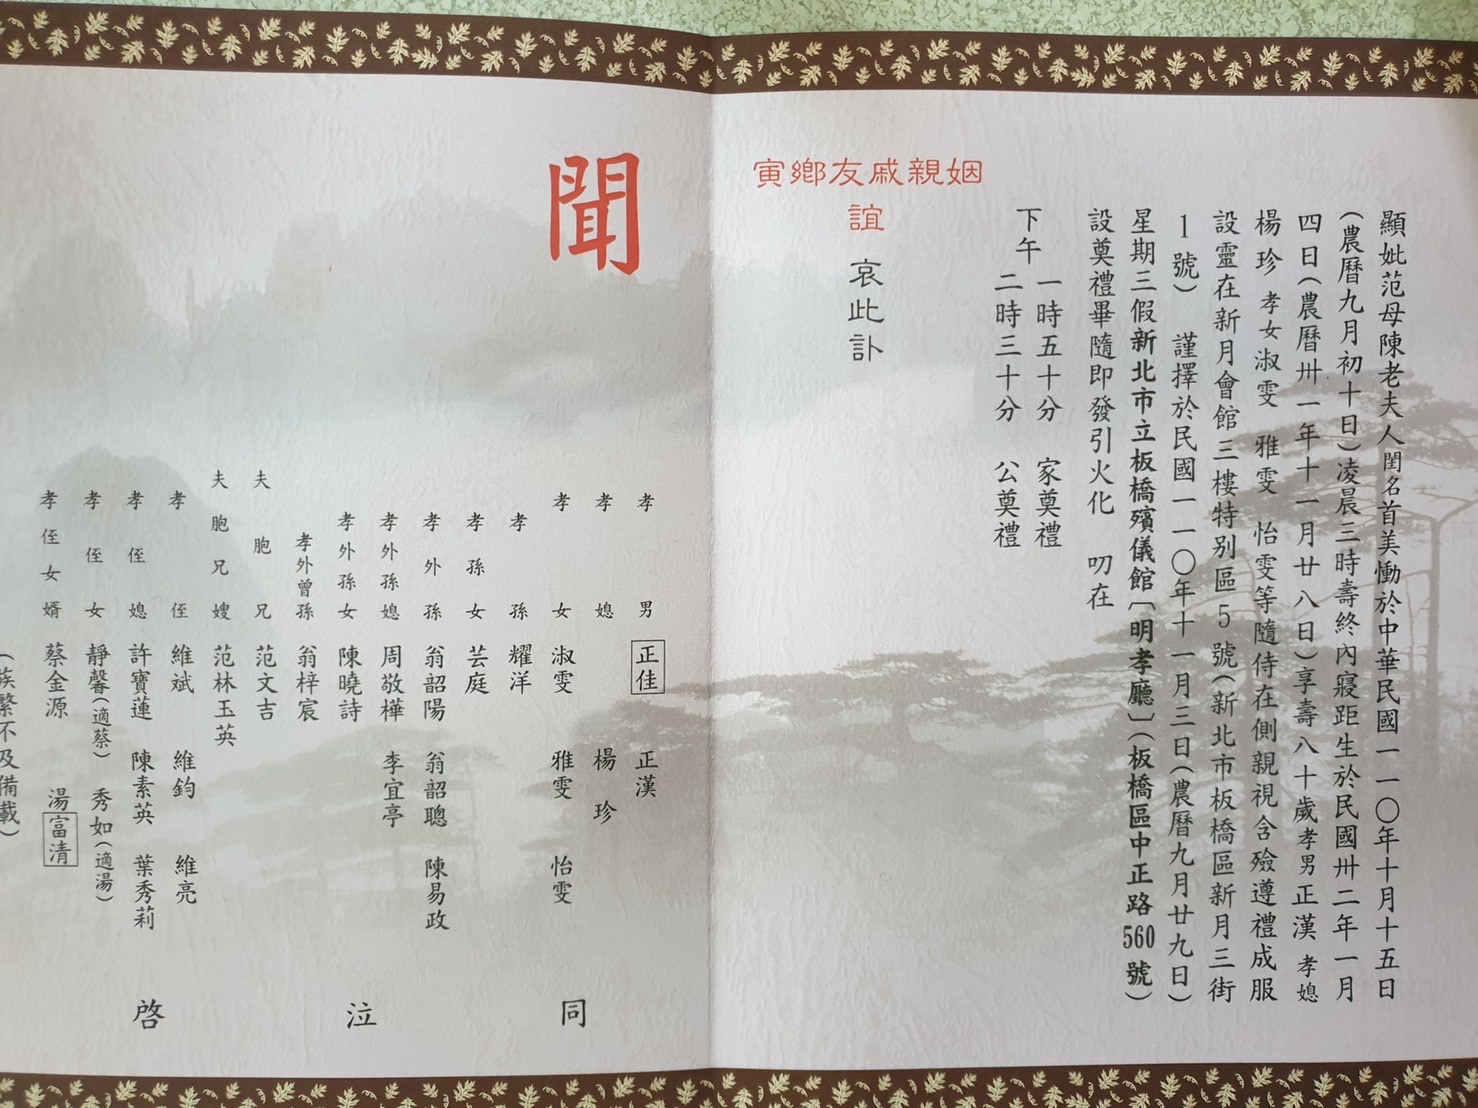 顯妣范母陳老夫人閨名首美慟於中華民國一一〇年十月十五日
(農曆九月初十日)凌晨三時壽終內寢距生於民國卅二年一月
四日(農曆卅一年十一月廿八日)享壽八十歲孝男正漢 孝媳
楊珍 孝女淑雯 雅雯 怡雯等隨侍在側親視含殮遵禮成服
設靈在新月會館三樓特別區5號(新北市板橋區新月三街
1號) 謹擇於民國一一〇年十一月三日(農曆九月廿九日)
星期三假新北市立板橋殯儀館〔明孝廳〕(板橋區中正路560號)
設奠禮畢隨即發引火化 叨在
下午 一時五十分 家奠禮
二時三十分 公奠禮
姻親戚友鄉寅
誼 哀此訃
聞
孝男 正佳 正漢
孝媳 楊珍
孝女 淑雯 雅雯 怡雯
孝孫 耀洋
孝孫女 芸庭
孝外孫 翁韶陽 翁韶聰 陳易政
孝外孫媳 周敬樺 李宜亭
孝外孫女 陳曉詩
孝外曾孫 翁梓宸
夫胞兄 范文吉
夫胞兄嫂 范林玉英
孝侄 維斌 維鈞 維亮
孝侄媳 許寶蓮 陳素英 葉秀莉
孝侄女 靜馨(適蔡) 秀如(適湯)
孝侄女婿 蔡金源 湯富清
(族繁不及備載)
同 泣 啓